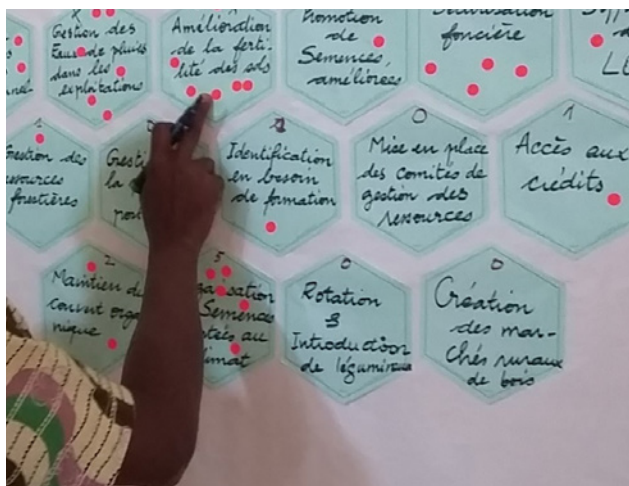 Gestion des
Eaux de pluies
dans les
exploitations
Amélioration
de la ferti-
lité des sols
Promotion
de
Semences
améliorées
foncière
1
Gestion des
ressources
forestières
Identification
en besoin
de formation
0
Mise en place
des comités de
gestion des
ressources
1
Accès aux
crédits
2
Maintien du
couvert orga
nique
5
Semences
au
0
Rotation
&
Introduction
de légumineux
0
Création
des mar-
chés ruraux
de bois